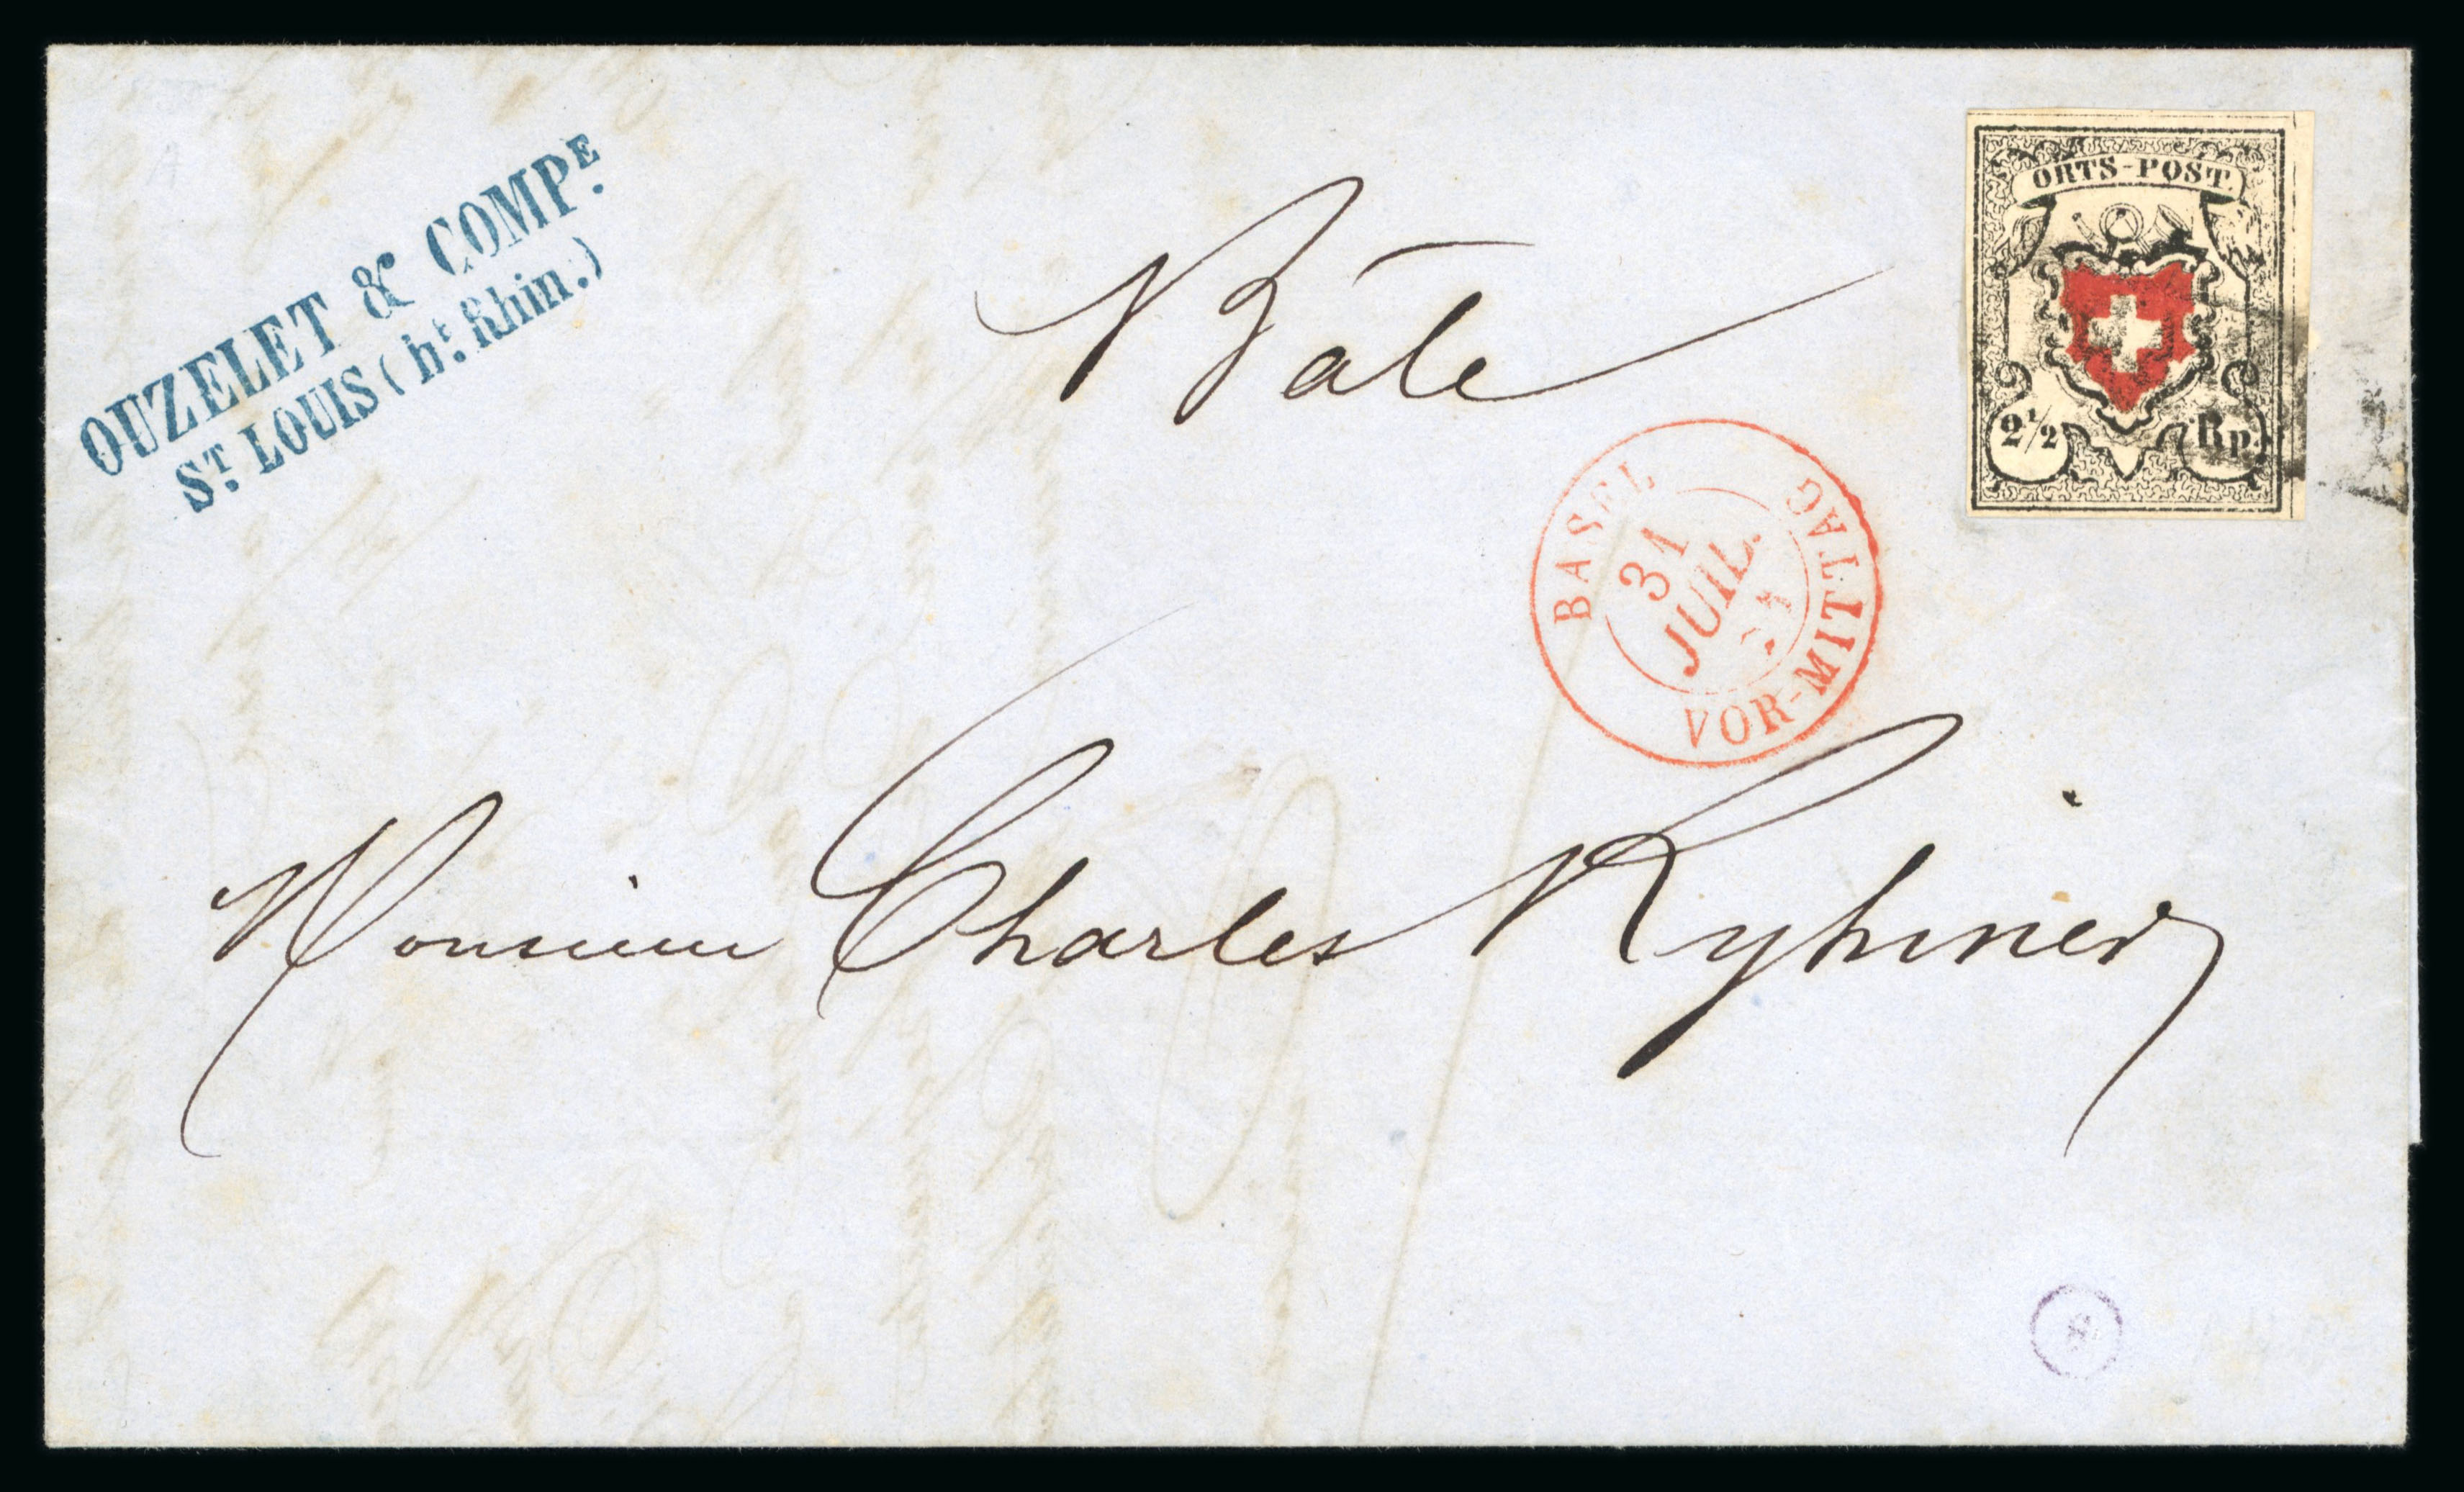 OUZELET & COMPE.
ST. LOUIS (ht. Rhin.)
Bâle
ORTS-POST.
2 1/2 Rp.
BASEL
31
JUIL.
VOR-MITTAG
Monsieur Charles Ryhiner